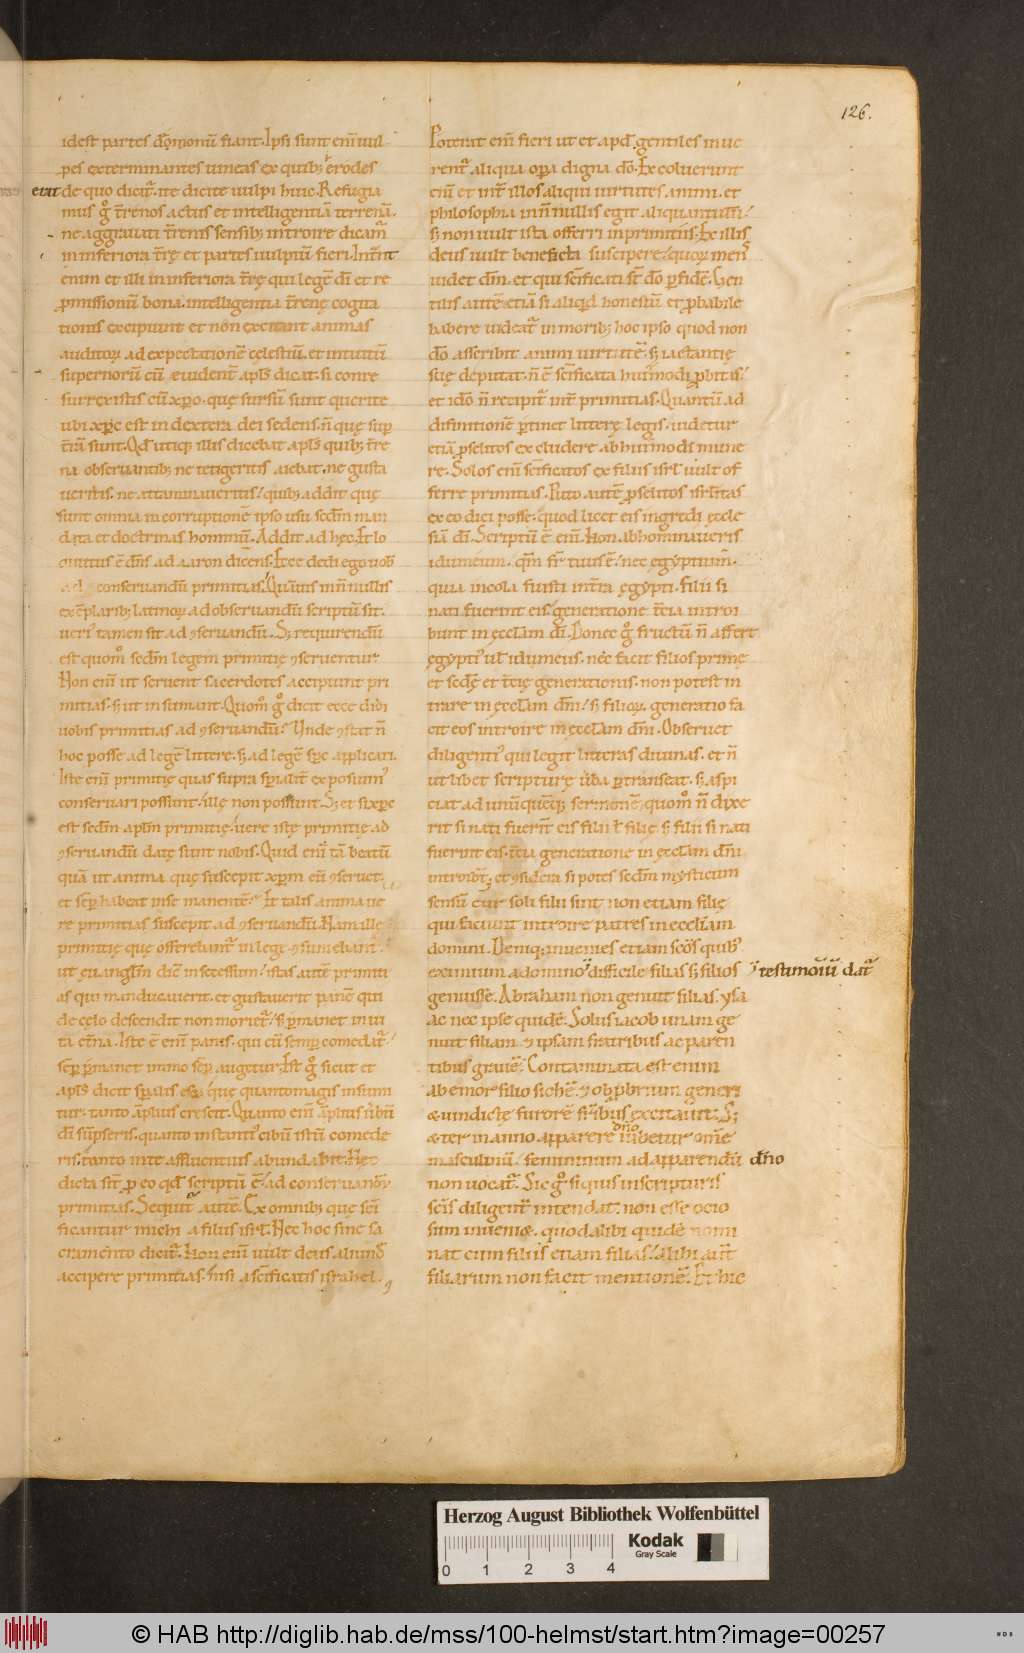 126.
idest partes dęmoniū fiant. Ipsi sunt eni᷑ uul
pes exterminantes uineas ex quib; erodes
erat de quo dicit᷑. ite dicite uulpi huic. Refugia
mus g̊ t̄renos actus et intelligentiā terrenā.
ne aggrauati t̄renis sensib; introire dicam᷑
in inferiora t̄rę et partes uulpiū fieri. Int̄rnt
enim et illi in inferiora t̄rę qui legē dī et re
p̱missionū bona. intelligentia t̄renę cogita
tionis excipiunt et non excitant animas
auditoꝝ ad expectationē cęlestiū. et intuitū
supernorū cū euident᷑ apl̄s dicat. si conre
surrexistis cū xp̄o. quę sursū sunt querite
ubi xp̄c est in dextera dei sedens. n̄ quę sup̱
t̄rā sunt. Qd̄ utiq; illis dicebat apl̄s quib; t̄re
na obseruantib; ne tetigeritis aiebat. ne gusta
ueritis. ne attaminaueritis. quib; addit quę
sunt omnia in corruptionē ipso usu scd̄m man
data et doctrinas hominū. Addit ad hęc. Et lo
cutus ē dn̄s ad aaron dicens. Ecce dedi ego uob̄
ad conseruandū primitias. Quāuis in n̄nullis
exēplarib; latinoꝝ ad obseruandū scriptū sit.
ueri᷑ tamen sit ad ꝯseruandū. S; requirendū
est quom̊ scd̄m legem primitię ꝯseruentur
Non eni᷑ ut seruent sacerdotes accipiunt pri
mitias. s; ut insumant. Quom̊ g̊ dicit ecce dedi
uobis primitias ad ꝯseruandū. Unde ꝯstat n̄
hoc posse ad legē littere. s; ad legē sp̄c applicari.
Iste eni᷑ primitię quas supra sp̄ialit᷑ exposuim᷑
conseruari possunt. illę non possunt. S; et si xp̄c
est scd̄m aplm̄ primitię. uere istę primitię ad
ꝯseruandū datę sunt nobis. Quid eni᷑ tā beatū
quā ut anima quę suscepit xp̄m eū ꝯseruet.
et semp̱ habeat in se manentē. Et talis anima ue
re primitias suscepit ad ꝯseruandū. Nam illę
primitię quę offerebant᷑ in lege ꝯsumebant᷑
ut euanglm̄ dicē in secessum. istas autē primiti
as qui manducauerit. et gustauerit panē qui
de celo descendit non moriet᷑. s; p̱manet in ui
ta et̄na. Iste ē eni᷑ panis. qui cū semp̱ comedat᷑.
semp̱ p̱manet immo semp̱ augetur. Est g̊ sicut et
apl̄s dicit sp̄alis esca quę quantomagis insumi
tur. tanto āplius crescit. Quanto eni᷑ āplius ūbū
dī sūpseris. quanto instanti᷑ cibū istū comede
ris. tanto in te affluentius abundabit. Nec
dicta sit̄ p̱ eo qd̄ scriptū ē. ad conseruandū
primitias. Sequit᷑ autē. Ex omnib; quę scī
ficantur michi a filiis isrl̄. Nec hoc sine sa
cramento dicit᷑. Non eni᷑ uult deus aliunde
accipere primitias. nisi a scīficatis israhel.
Poterat eni᷑ fieri ut et apd̄ gentiles inue
rent᷑ aliqua opa digna dō. Excoluerunt
eni᷑ et int̄ illos aliqui uirtutes animi. et
philosophia in n̄nullis egit aliquantulū.
s; non uult ista offerri in primitiis. Ex illis
deus uult beneficta suscipere. quoꝝ mens
uidet dm̄. et qui scīficati st̄ dō p̱ fidē. Gen
tilis autē etiā si aliqid honestū et p̱babile
habere uideat᷑ in morib; hoc ipso quod non
dō asscribit animi uirtutē. s; iactantię
suę deputat. n̄ ē scīficata hui᷑modi p̱bitas.
et idō n̄ recipit᷑ int̄ primitias. Quantū ad
difinitionē p̱tinet litterę legis. uidetur
etiā p̱selitos excludere ab hui᷑modi mune
re. Solos eni᷑ scīficatos ex filiis isrl̄ uult of
ferre primitias. Puto autē p̱selitos isrl̄itas
ex eo dici posse. quod licet eis ingredi ęccle
siā dī. Scriptū ē eni᷑. Non abhominaueris
idumeum. qm̄ fr̄ tuus ē. nec egyptium.
quia incola fuisti in t̄ra egypti. filii si
nati fuerint eis. generatione t̄cia introi
bunt in ęccl̄am dī. Donec g̊ fructū n̄ affert
egypti᷑ ul̄ idumeus. nec facit filios primę
et scdę et t̄cię generationis. non potest in
trare in ęccl̄am dn̄i. s; filioꝝ generatio fa
cit eos introire in ęccl̄am dn̄i. Obseruet
diligenti᷑ qui legit litteras diuinas. et n̄
ut libet scripturę ūba p̱transeat. s; aspi
ciat ad unūquēq; sermonē. quom̊ n̄ dixe
rit si nati fuerīt eis filii ł filię. s; filii si nati
fuerint eis. t̄cia generatione in ęccl̄am dn̄i
introib̄t. et ꝯsidera si potes scd̄m mysticum
sensū. cur soli filii sint non etiam filię
qui faciunt introire patres in eccl̄iam
domini. Deniq; inuenies etiam scōs quib᷑
eximium a domino difficile filias s; filios testimoniū dat᷑
genuisse. Abraham non genuit filias. ysa
ac nec ipse quidē. Solus iacob unam ge
nuit filiam. et ipsam fratribus ac paren
tibus grauē. Contaminata est enim
ab emor filio sichē. et obp̱brium generi
& uindictę furorē fr̄ibus excitauit. S;
& ter in anno apparere dn̄o iubetur om̄e
masculinū. femininum ad apparendū dn̄o
non uocat᷑. Sic g̊ si quis in scripturis
scīs diligent᷑ intendat. non esse ocio
sum inueni&. quod alibi quidē nomi
nat cum filiis etiam filias. alibi aut̄
filiarum non facit mentionē. Et hic
Herzog August Bibliothek Wolfenbüttel
0 1 2 3 4
Kodak
Gray Scale
© HAB http://diglib.hab.de/mss/100-helmst/start.htm?image=00257